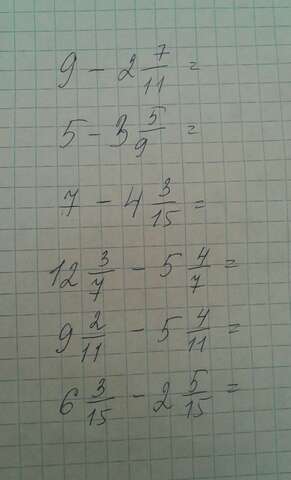 9 - 2 7/11 =
5 - 3 5/9 =
7 - 4 3/15 =
12 3/7 - 5 4/7 =
9 2/11 - 5 4/11 =
6 3/15 - 2 5/15 =